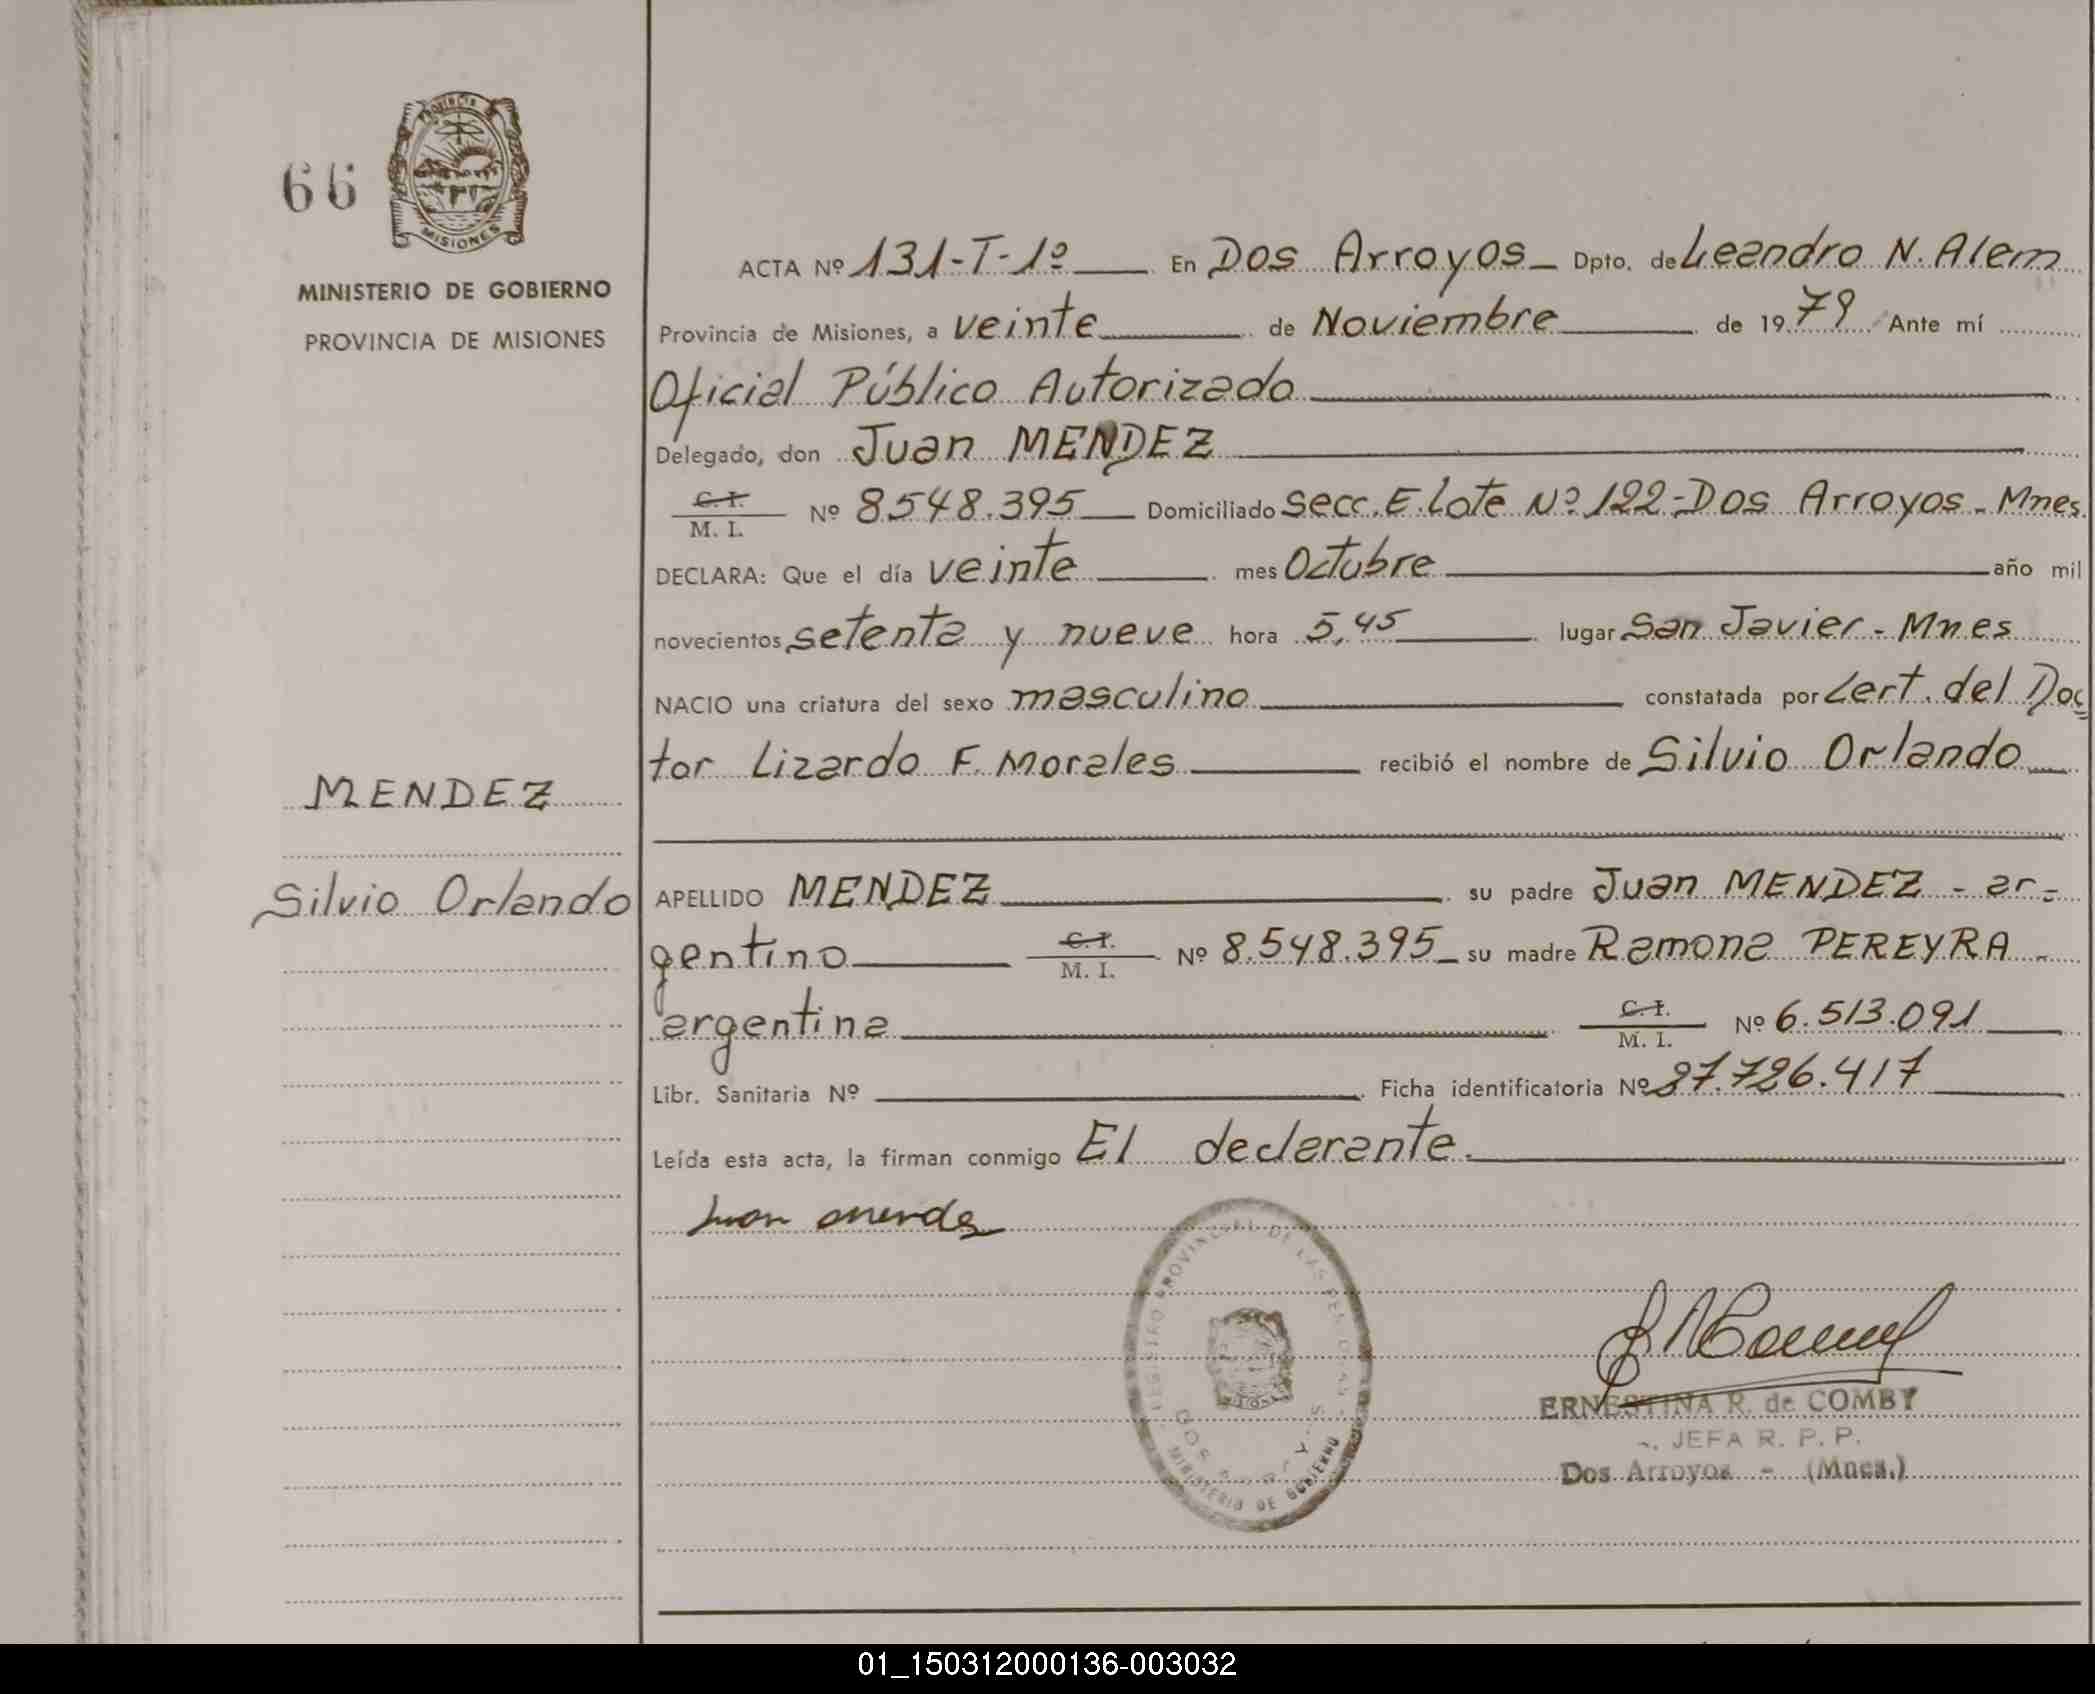 66
Provincia
MISIONES
MINISTERIO DE GOBIERNO
PROVINCIA DE MISIONES
MENDEZ
Silvio Orlando
ACTA Nº 131-T-1º En Dos Arroyos Dpto. de Leandro N. Alem
Provincia de Misiones, a veinte de Noviembre de 1979 Ante mí
Oficial Público Autorizado
Delegado, don Juan MENDEZ
C. I.
M. I. Nº 8.548.395 Domiciliado Secc. E. Lote Nº 122-Dos Arroyos - Mnes.
DECLARA: Que el día veinte mes Octubre año mil
novecientos setenta y nueve hora 5,45 lugar San Javier - Mnes
NACIO una criatura del sexo masculino constatada por Cert. del Doc
tor Lizardo F. Morales recibió el nombre de Silvio Orlando
APELLIDO MENDEZ su padre Juan MENDEZ - ar-
gentino C. I. M. I. Nº 8.548.395 su madre Ramona PEREYRA -
argentina C. I. M. I. Nº 6.513.091
Libr. Sanitaria Nº Ficha identificatoria Nº 27.726.417
Leída esta acta, la firman conmigo El declarante.
Juan Mendez
REGISTRO PROVINCIAL DE LAS PERSONAS
DOS ARROYOS
MISIONES
MINISTERIO DE GOBIERNO
ERNESTINA R. de COMBY
JEFA R. P. P.
Dos Arroyos - (Mnes.)
01_150312000136-003032